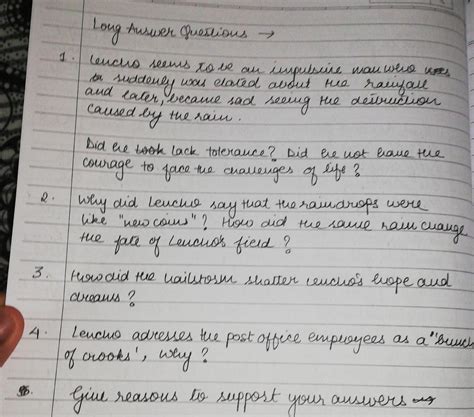 Long Answer Questions →
1. Lencho seems to be an impulsive man who
suddenly was elated about the rainfall
and later, became sad seeing the destruction
caused by the rain.
Did he lack tolerance? Did he not have the
courage to face the challenges of life?
2. Why did Lencho say that the raindrops were
like "new coins"? How did the same rain change
the fate of Lencho's field?
3. How did the hailstorm shatter Lencho's hope and
dreams?
4. Lencho adresses the post office employees as a "bunch
of crooks', why?
5. Give reasons to support your answers